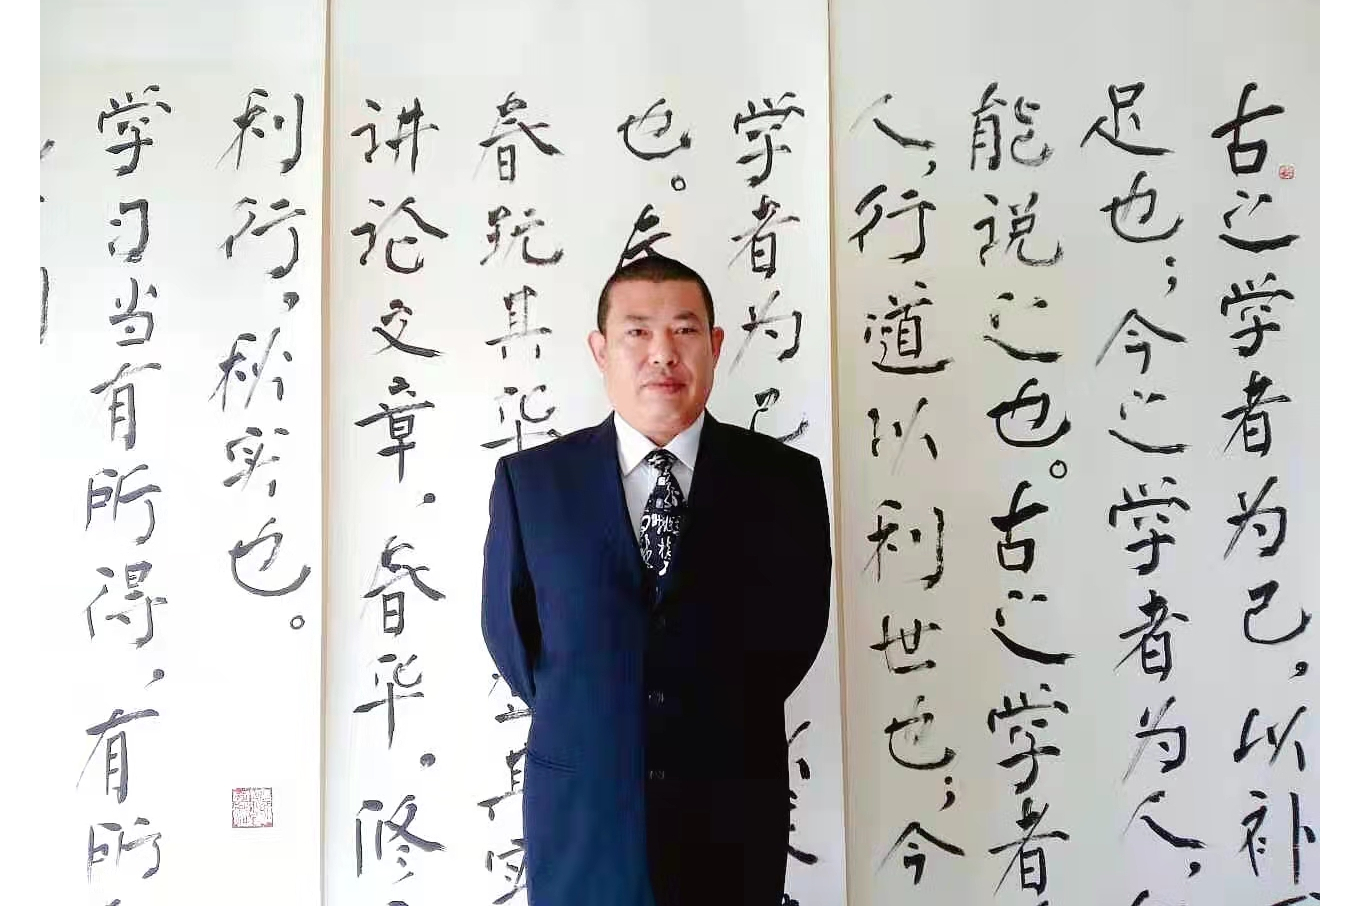 古之学者为己，以补
足也；今之学者为人，
能说之也。古之学者
人，行道以利世也；今
学者为己
也。
春玩其华其实
讲论文章，春华，修
利行，秋实也。
学习当有所得，有所